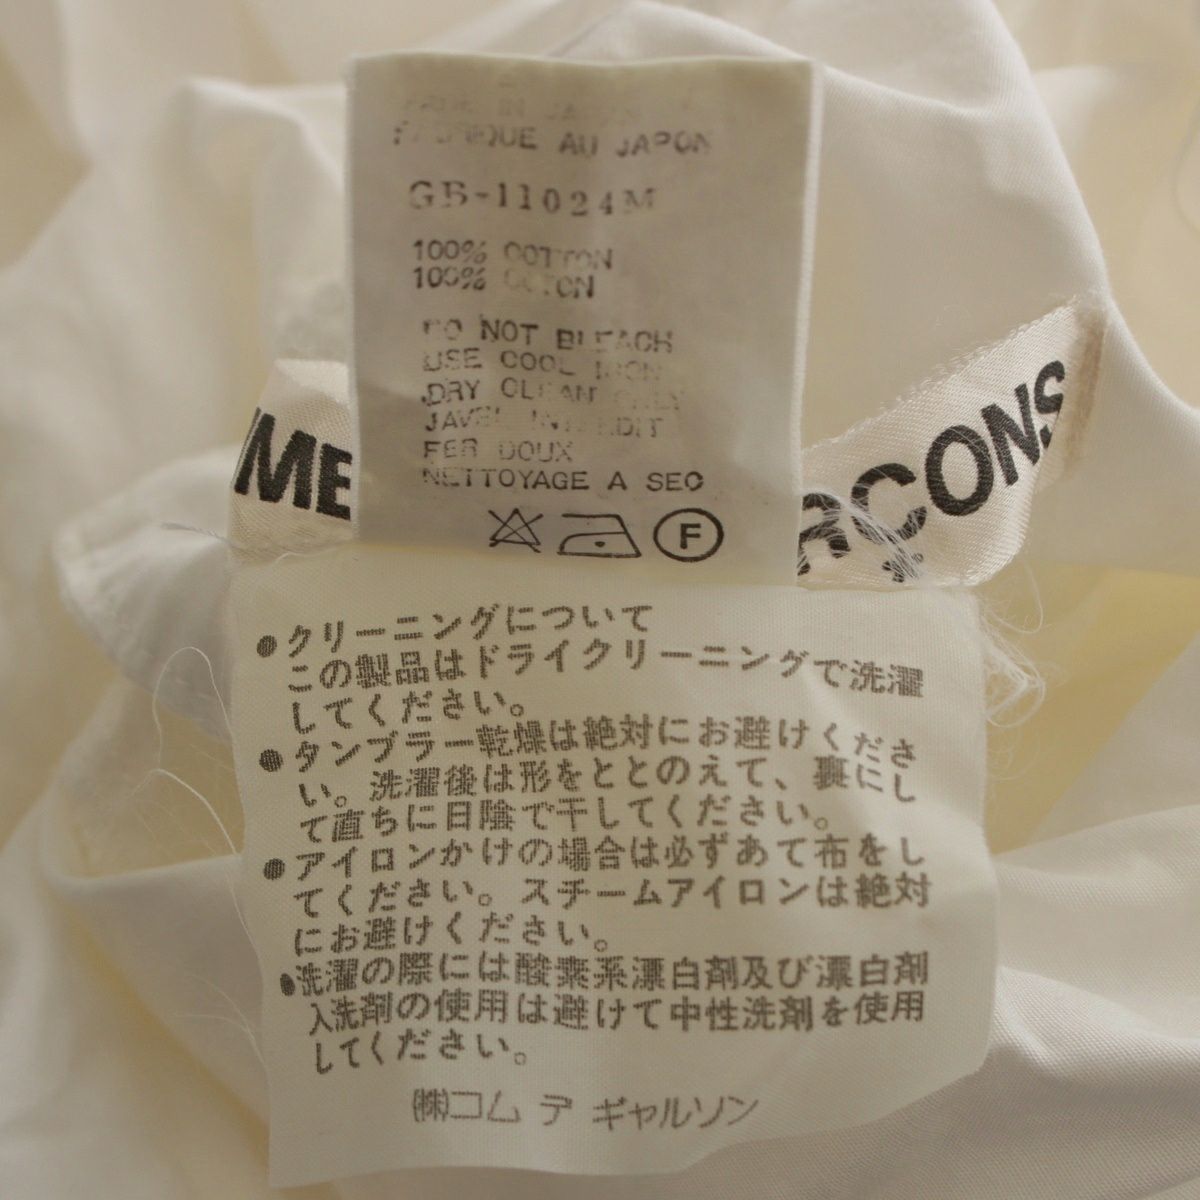 MADE IN JAPAN
FABRIQUE AU JAPON
GB-11024M
100% COTTON
100% COTON
DO NOT BLEACH
USE COOL IRON
DRY CLEAN ONLY
JAVEL INTERDIT
FER DOUX
NETTOYAGE A SEC
F
MME
RÇONS
●クリーニングについて
この製品はドライクリーニングで洗濯
してください。
●タンブラー乾燥は絶対にお避けくださ
い。洗濯後は形をととのえて、裏にし
て直ちに日陰で干してください。
●アイロンかけの場合は必ずあて布をし
てください。スチームアイロンは絶対
にお避けください。
●洗濯の際には酸素系漂白剤及び漂白剤
入洗剤の使用は避けて中性洗剤を使用
してください。
㈱コム デ ギャルソン